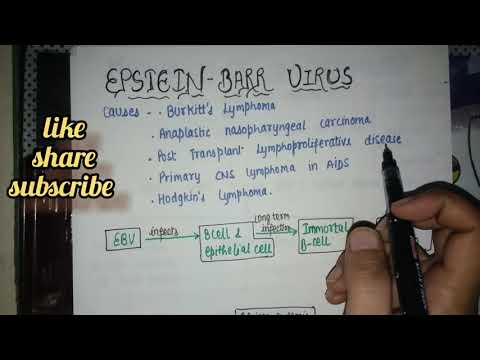 EPSTEIN-BARR VIRUS
Causes - . Burkitt's Lymphoma
. Anaplastic nasopharyngeal carcinoma
. Post Transplant Lymphoproliferative disease
. Primary CNS Lymphoma in AIDS
. Hodgkin's Lymphoma.
like
share
subscribe
EBV
infects
B cell &
epithelial cell
long term
infection
Immortal
B-cell